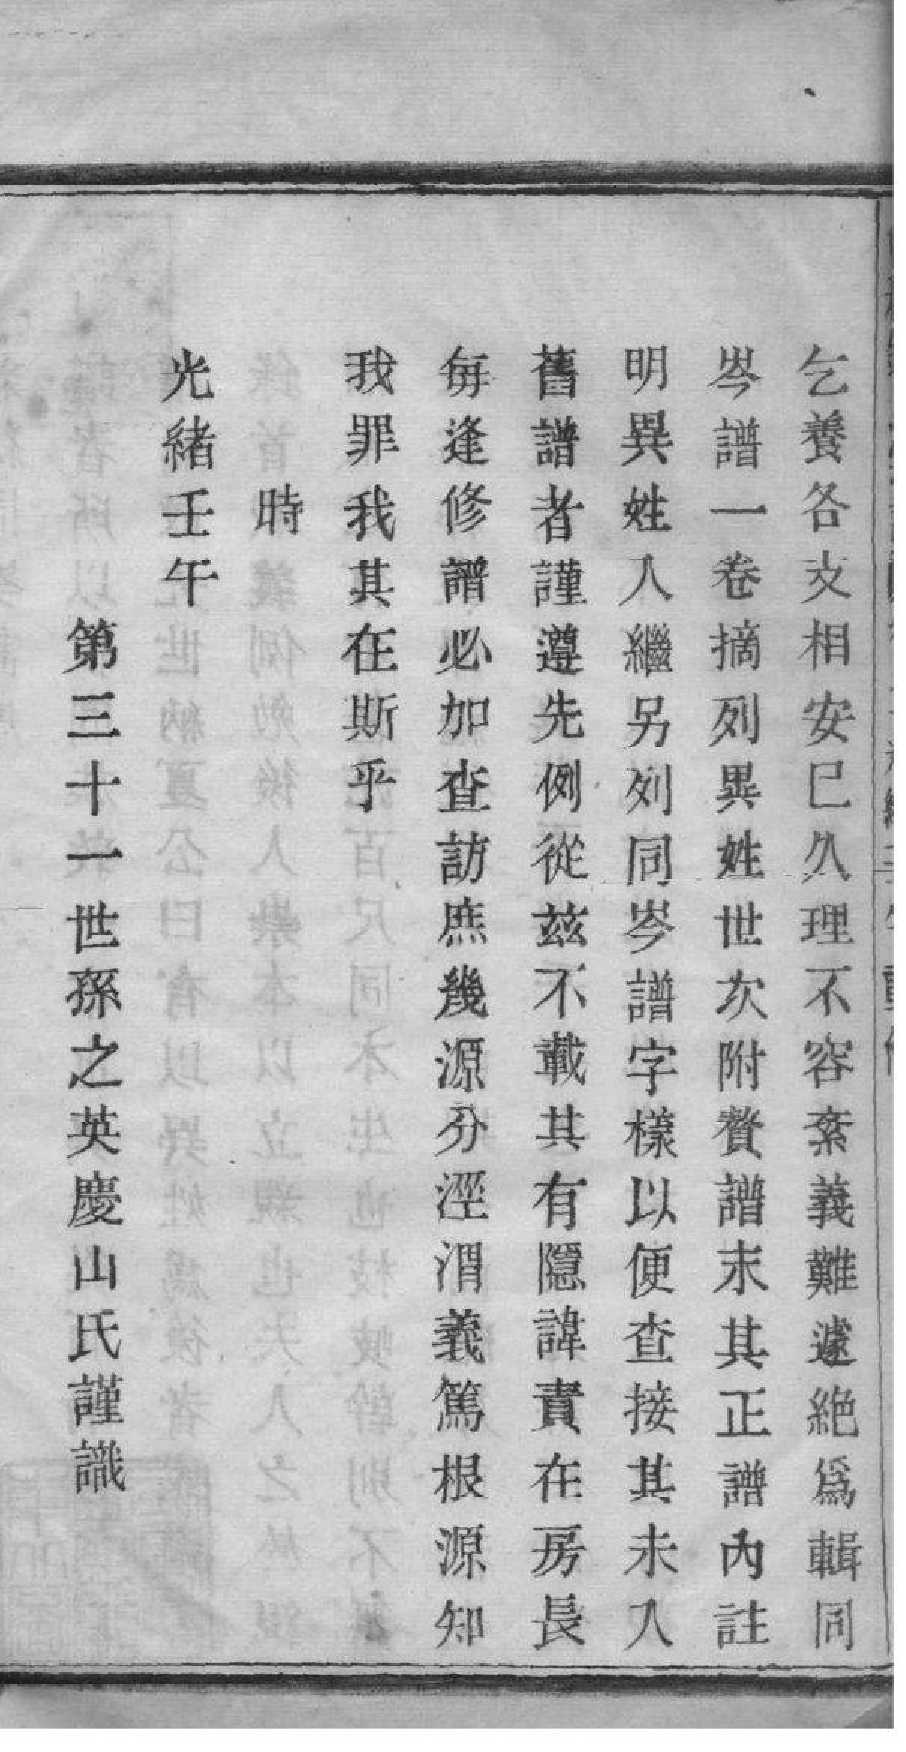 乞養各支相安已久理不容紊義難遽絕爲輯同
岑譜一卷摘列異姓世次附贅譜末其正譜內註
明異姓人繼另列同岑譜字樣以便查接其未入
舊譜者謹遵先例從茲不載其有隱諱責在房長
每逢修譜必加查訪庶幾源分涇渭義篤根源知
我罪我其在斯乎
時
光緒壬午
第三十一世孫之英慶山氏謹識